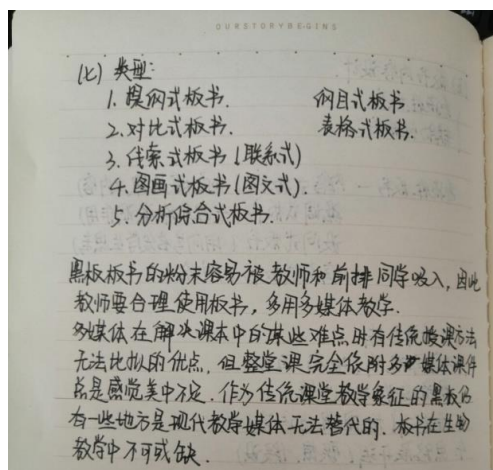 OURSTORYBEGINS
(七) 类型:
1. 提纲式板书. 纲目式板书
2. 对比式板书. 表格式板书.
3. 线索式板书 (联系式)
4. 图画式板书 (图文式).
5. 分析综合式板书.
黑板板书的粉末容易被教师和前排同学吸入，因此
教师要合理使用板书，多用多媒体教学.
多媒体在解决课本中的某些难点时有传统授课方法
无法比拟的优点，但整堂课完全依附多媒体课件
总是感觉美中不足. 作为传统课堂教学象征的黑板仍
有一些地方是现代教学媒体无法替代的. 板书在生物
教学中不可或缺.